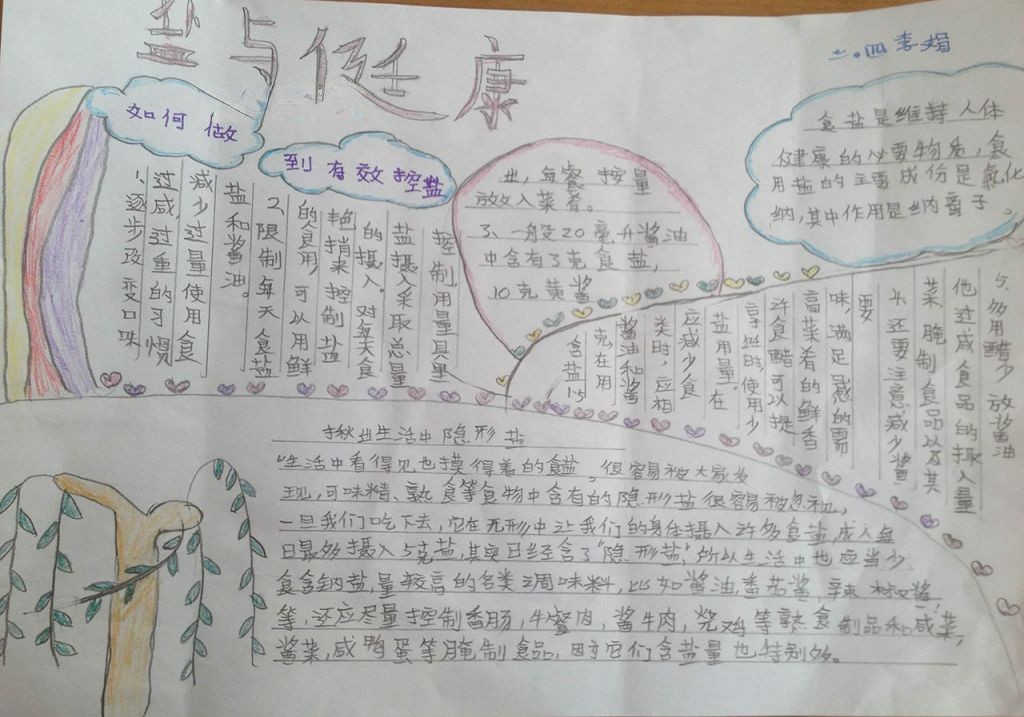 盐与健康
二.四 李娟
如何做
到有效控盐
食盐是维持人体
健康的必要物质，食
用盐的主要成份是氯化
纳，其中作用是纳离子。
1、逐步改变口味
过咸，过重的习惯
减少过量使用食
盐和酱油。
2、限制每天食盐
的食用，可以用鲜
艳捎来控制盐
的摄入。对每天食
盐摄入采取总量
控制，用量具量
出，每餐按量
放入菜肴。
3、一般20毫升酱油
中含有3克食盐，
10克黄酱
含盐1.5
克在用
酱油和酱
类时，应相
应减少食
盐用量。在
烹饪时，使用少
许食醋可以提
高菜肴的鲜香
味，满足感的需
要
4、还要注意减少酱
菜，腌制食品以及其
他过咸食品的摄入量
5、多用醋少放酱油
揪出生活中隐形盐
"生活中看得见也摸得着的食盐。很容易被大家发
现，可味精、熟食等食物中含有的隐形盐很容易被忽视。
一旦我们吃下去，它在无形中让我们的身体摄入许多食盐，成人每
日最多摄入5克盐，其实已经含了"隐形盐"，所以生活中也应当少
食含钠盐，量较高的各类调味料，比如酱油，番茄酱，辣椒酱
等，还应尽量控制香肠，牛餐肉，酱牛肉，烧鸡等熟食制品和咸菜，
酱菜，咸鸭蛋等腌制食品，因为它们含盐量也特别多。